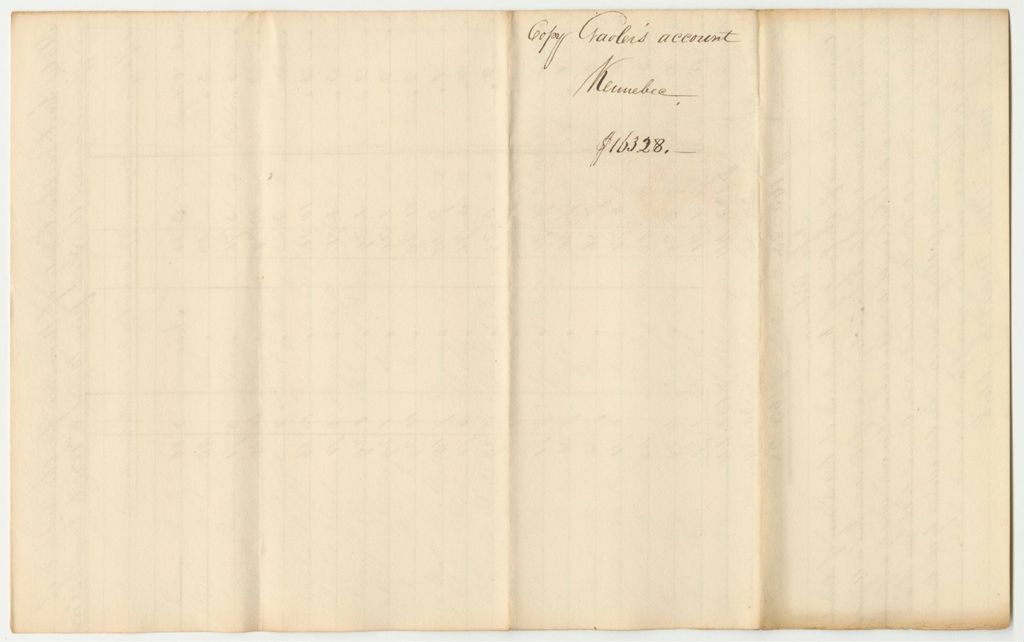 Copy Gaoler's account
Kennebec.
$163.28.